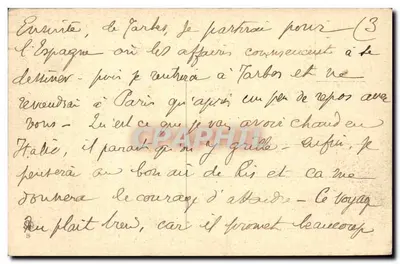 Ensuite, de Tarbes, je partirai pour (3
l'Espagne où les affaires commencent à se
dessiner - puis je rentrerai à Tarbes et ne
reviendrai à Paris qu'après un peu de repos avec
vous - Qu'est ce que je vais avoir chaud en
Italie, il parait qu'on y grille - enfin, je
penserai au bon air de Ris et ça me
donnera le courage d'attendre - Ce voyage
me plait bien, car il promet beaucoup